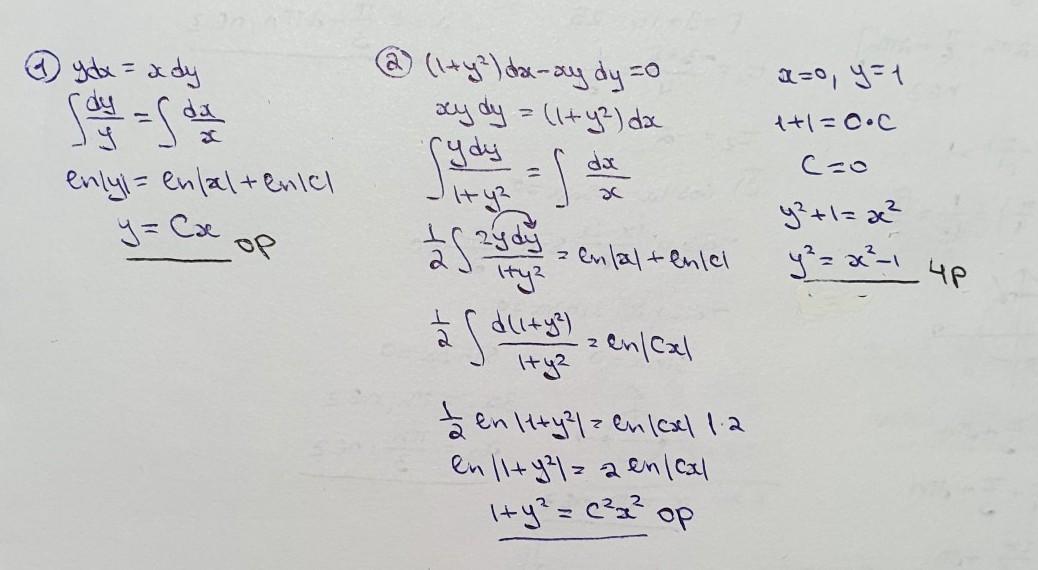 ① ydx = x dy
∫ dy/y = ∫ dx/x
ln|y| = ln|x| + ln|c|
y = Cx OP
② (1+y²)dx - xy dy = 0
xy dy = (1+y²)dx
∫ ydy/1+y² = ∫ dx/x
1/2 ∫ 2ydy/1+y² = ln|x| + ln|c|
1/2 ∫ d(1+y²)/1+y² = ln|Cx|
1/2 ln|1+y²| = ln|cx| |·2
ln|1+y²| = 2 ln|Cx|
1+y² = c²x² OP
x=0, y=1
1+1 = 0·C
C=0
y²+1 = x²
y² = x²-1 4P